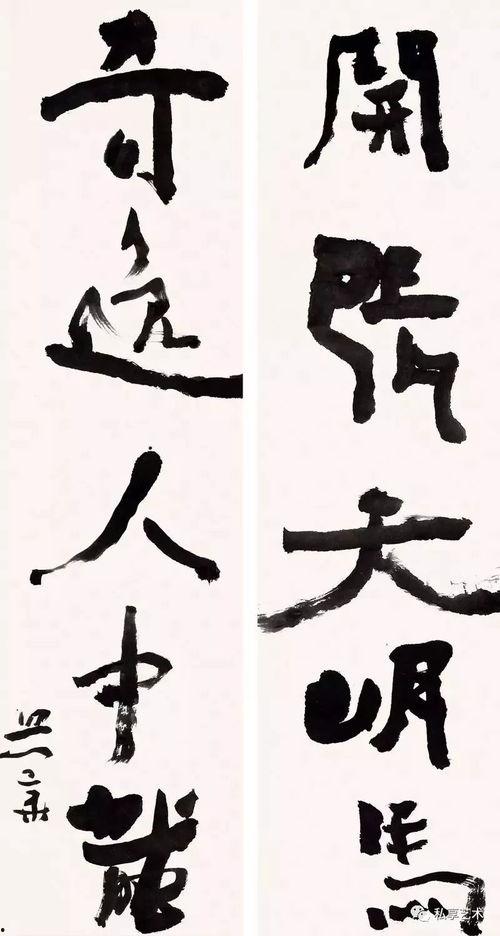 開張天岸馬
奇逸人中龍
私享艺术